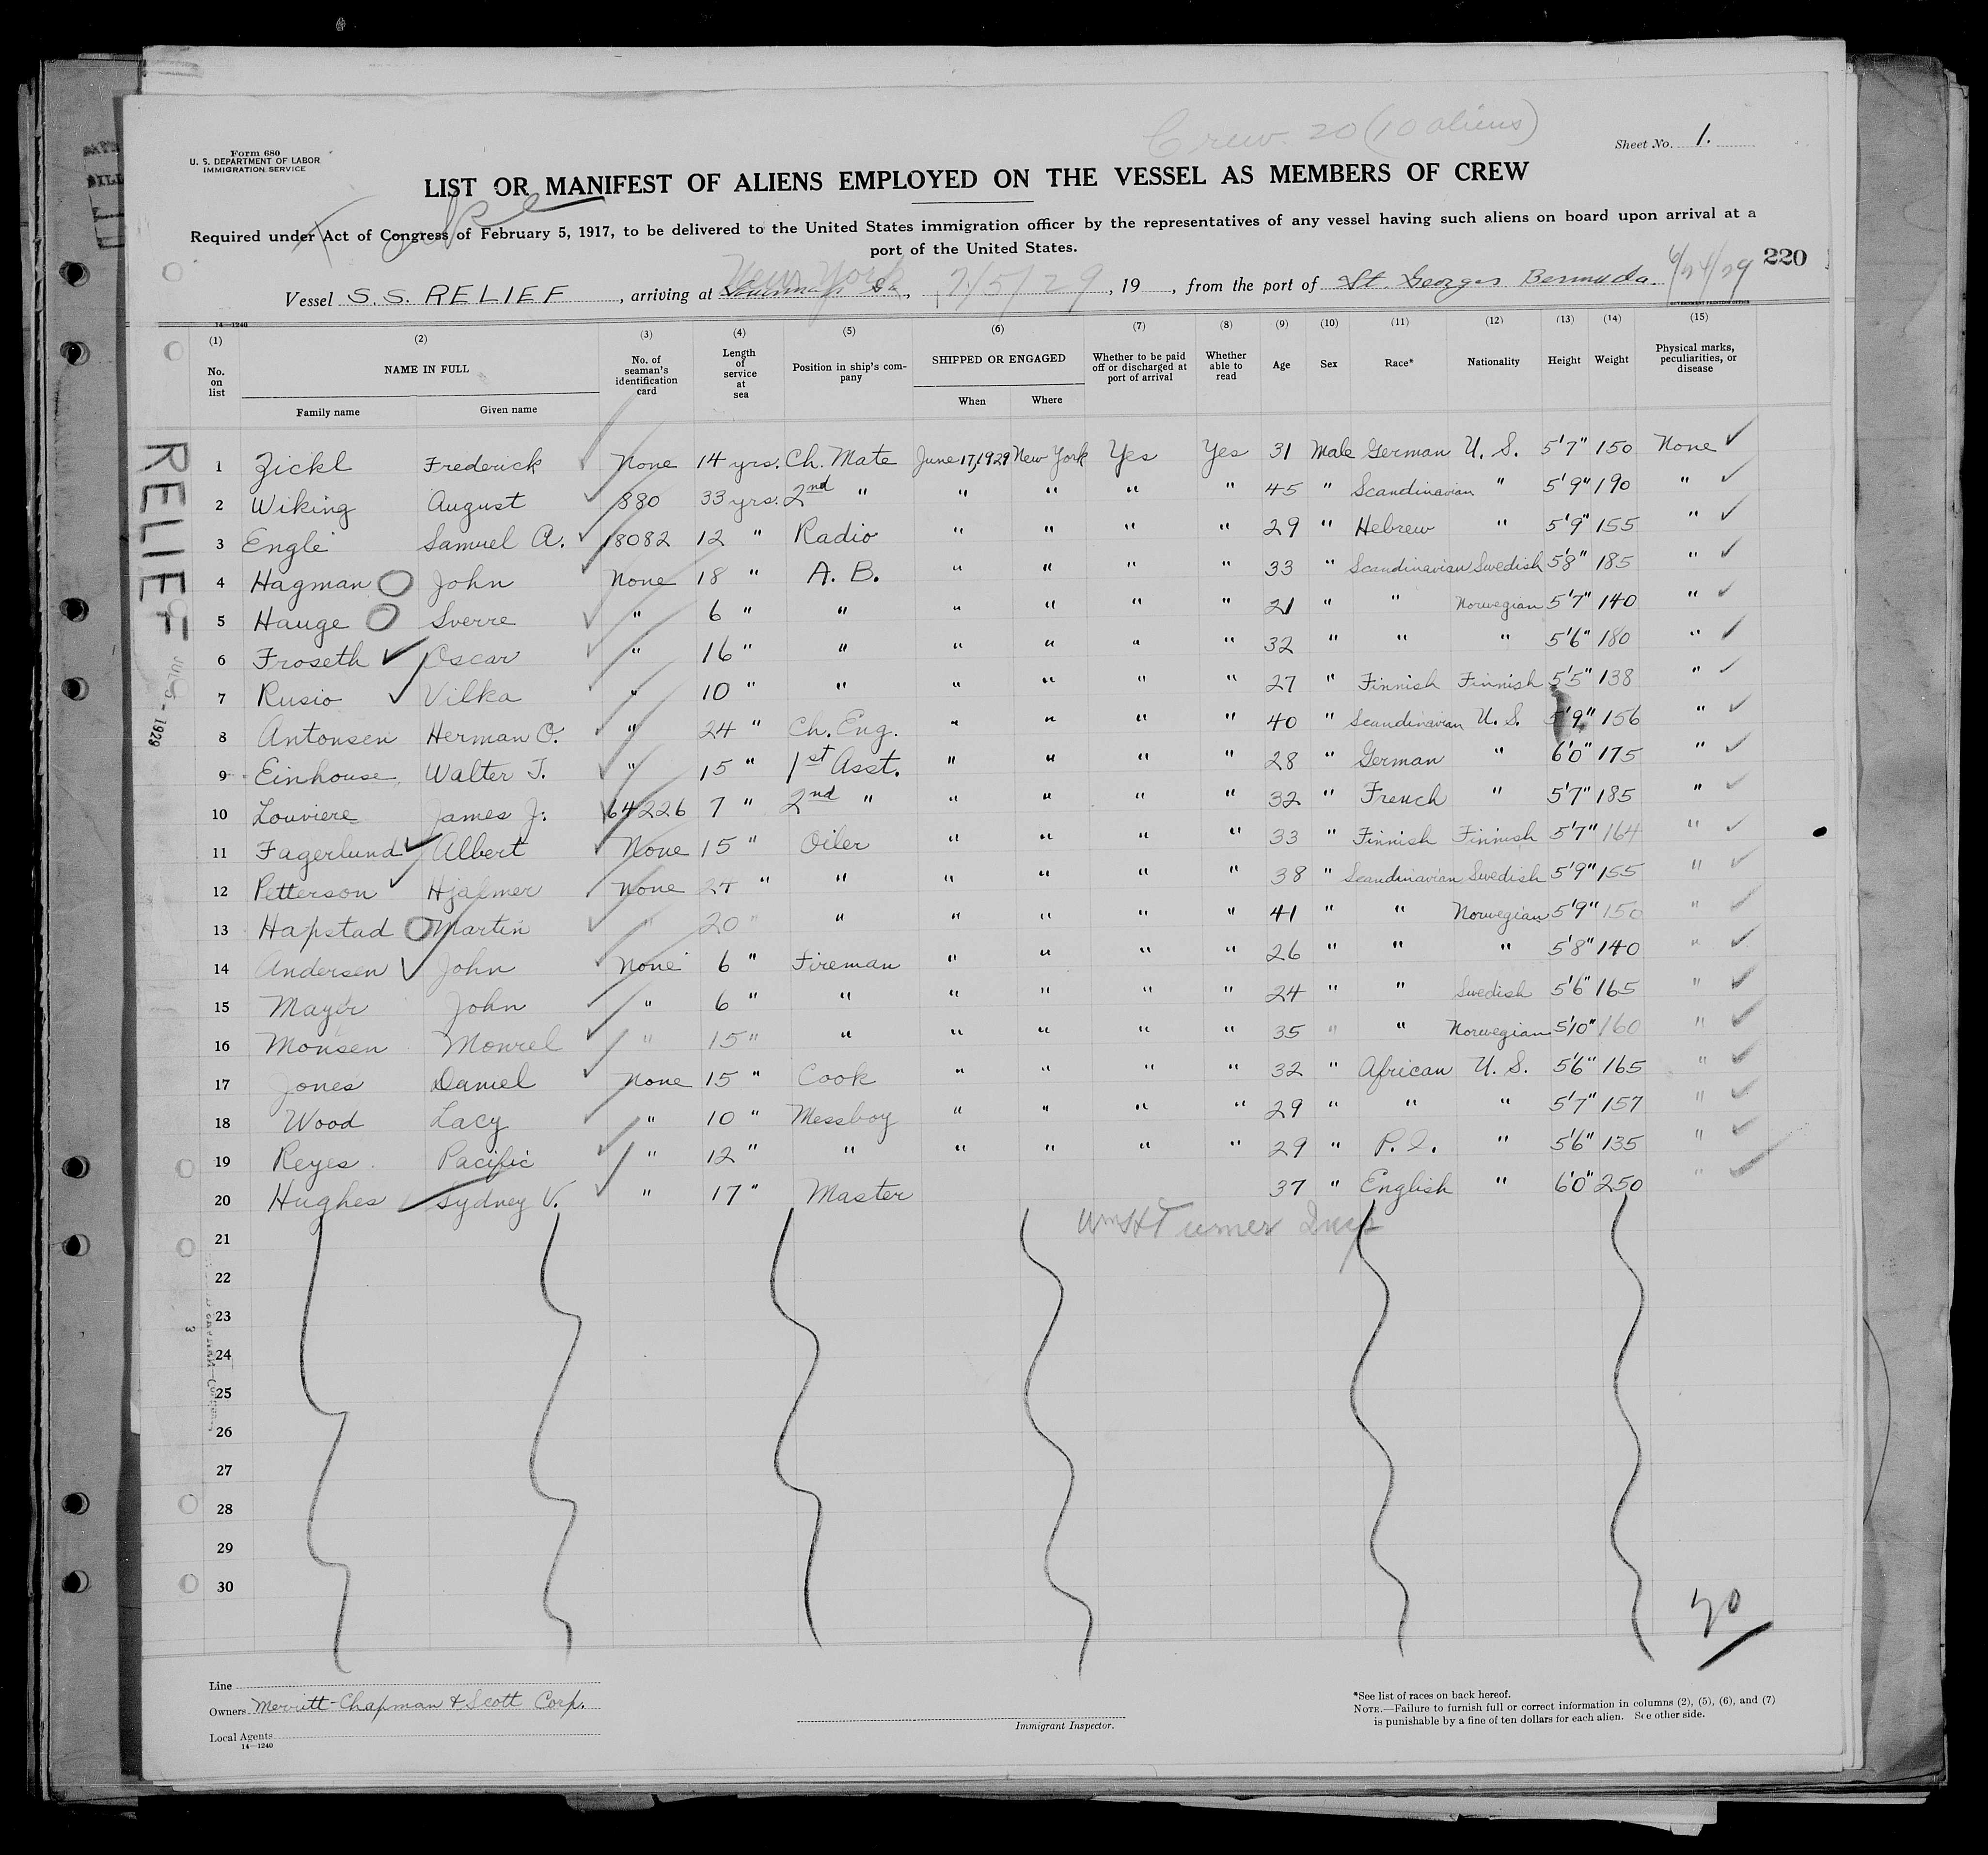 Crew 20 (10 aliens)
Form 680
U. S. DEPARTMENT OF LABOR
IMMIGRATION SERVICE
Sheet No. 1.
LIST OR MANIFEST OF ALIENS EMPLOYED ON THE VESSEL AS MEMBERS OF CREW
Required under Act of Congress of February 5, 1917, to be delivered to the United States immigration officer by the representatives of any vessel having such aliens on board upon arrival at a
port of the United States.
220
New York
6/24/29
Vessel S.S. RELIEF, arriving at Ga, 7/5/29, 19, from the port of St Georges Bermuda.
GOVERNMENT PRINTING OFFICE
14—1240
(1) (2) (3) (4) (5) (6) (7) (8) (9) (10) (11) (12) (13) (14) (15)
No. on list NAME IN FULL No. of seaman's identification card Length of service at sea Position in ship's company SHIPPED OR ENGAGED Whether to be paid off or discharged at port of arrival Whether able to read Age Sex Race* Nationality Height Weight Physical marks, peculiarities, or disease
Family name Given name When Where
1 Zickl Frederick None 14 yrs. Ch. Mate June 17, 1929 New York Yes Yes 31 Male German U. S. 5'7" 150 None
2 Wiking August 880 33 yrs. 2nd " " " " " 45 " Scandinavian " 5'9" 190 "
3 Engle Samuel A. 18082 12 " Radio " " " " 29 " Hebrew " 5'9" 155 "
4 Hagman John None 18 " A. B. " " " " 33 " Scandinavian Swedish 5'8" 185 "
5 Hauge Sverre " 6 " " " " " " 21 " " Norwegian 5'7" 140 "
6 Froseth Oscar " 16 " " " " " " 32 " " " 5'6" 180 "
7 Rusio Vilka " 10 " " " " " " 27 " Finnish Finnish 5'5" 138 "
8 Antonsen Herman O. " 24 " Ch. Eng. " " " " 40 " Scandinavian U. S. 5'9" 156 "
9 Einhouse Walter J. " 15 " 1st Asst. " " " " 28 " German " 6'0" 175 "
10 Louviere James J. 64226 7 " 2nd " " " " " 32 " French " 5'7" 185 "
11 Fagerlund Albert None 15 " Oiler " " " " 33 " Finnish Finnish 5'7" 164 "
12 Petterson Hjalmer None 24 " " " " " " 38 " Scandinavian Swedish 5'9" 155 "
13 Hapstad Martin " 20 " " " " " " 41 " " Norwegian 5'9" 150 "
14 Andersen John None 6 " Fireman " " " " 26 " " " 5'8" 140 "
15 Mayer John " 6 " " " " " " 24 " " Swedish 5'6" 165 "
16 Monsen Monrel " 15 " " " " " " 35 " " Norwegian 5'10" 160 "
17 Jones Daniel None 15 " Cook " " " " 32 " African U. S. 5'6" 165 "
18 Wood Lacy " 10 " Messboy " " " " 29 " " " 5'7" 157 "
19 Reyes Pacific " 12 " " " " " " 29 " P. I. " 5'6" 135 "
20 Hughes Sydney V. " 17 " Master 37 " English " 6'0" 250 "
21 Wm H Turner Insp
22
23
24
25
26
27
28
29
30
20
RELIEF
JUL 5 - 1929
Line
Owners Merritt-Chapman & Scott Corp.
Local Agents
14—1240
Immigrant Inspector.
*See list of races on back hereof.
NOTE.—Failure to furnish full or correct information in columns (2), (5), (6), and (7)
is punishable by a fine of ten dollars for each alien. See other side.